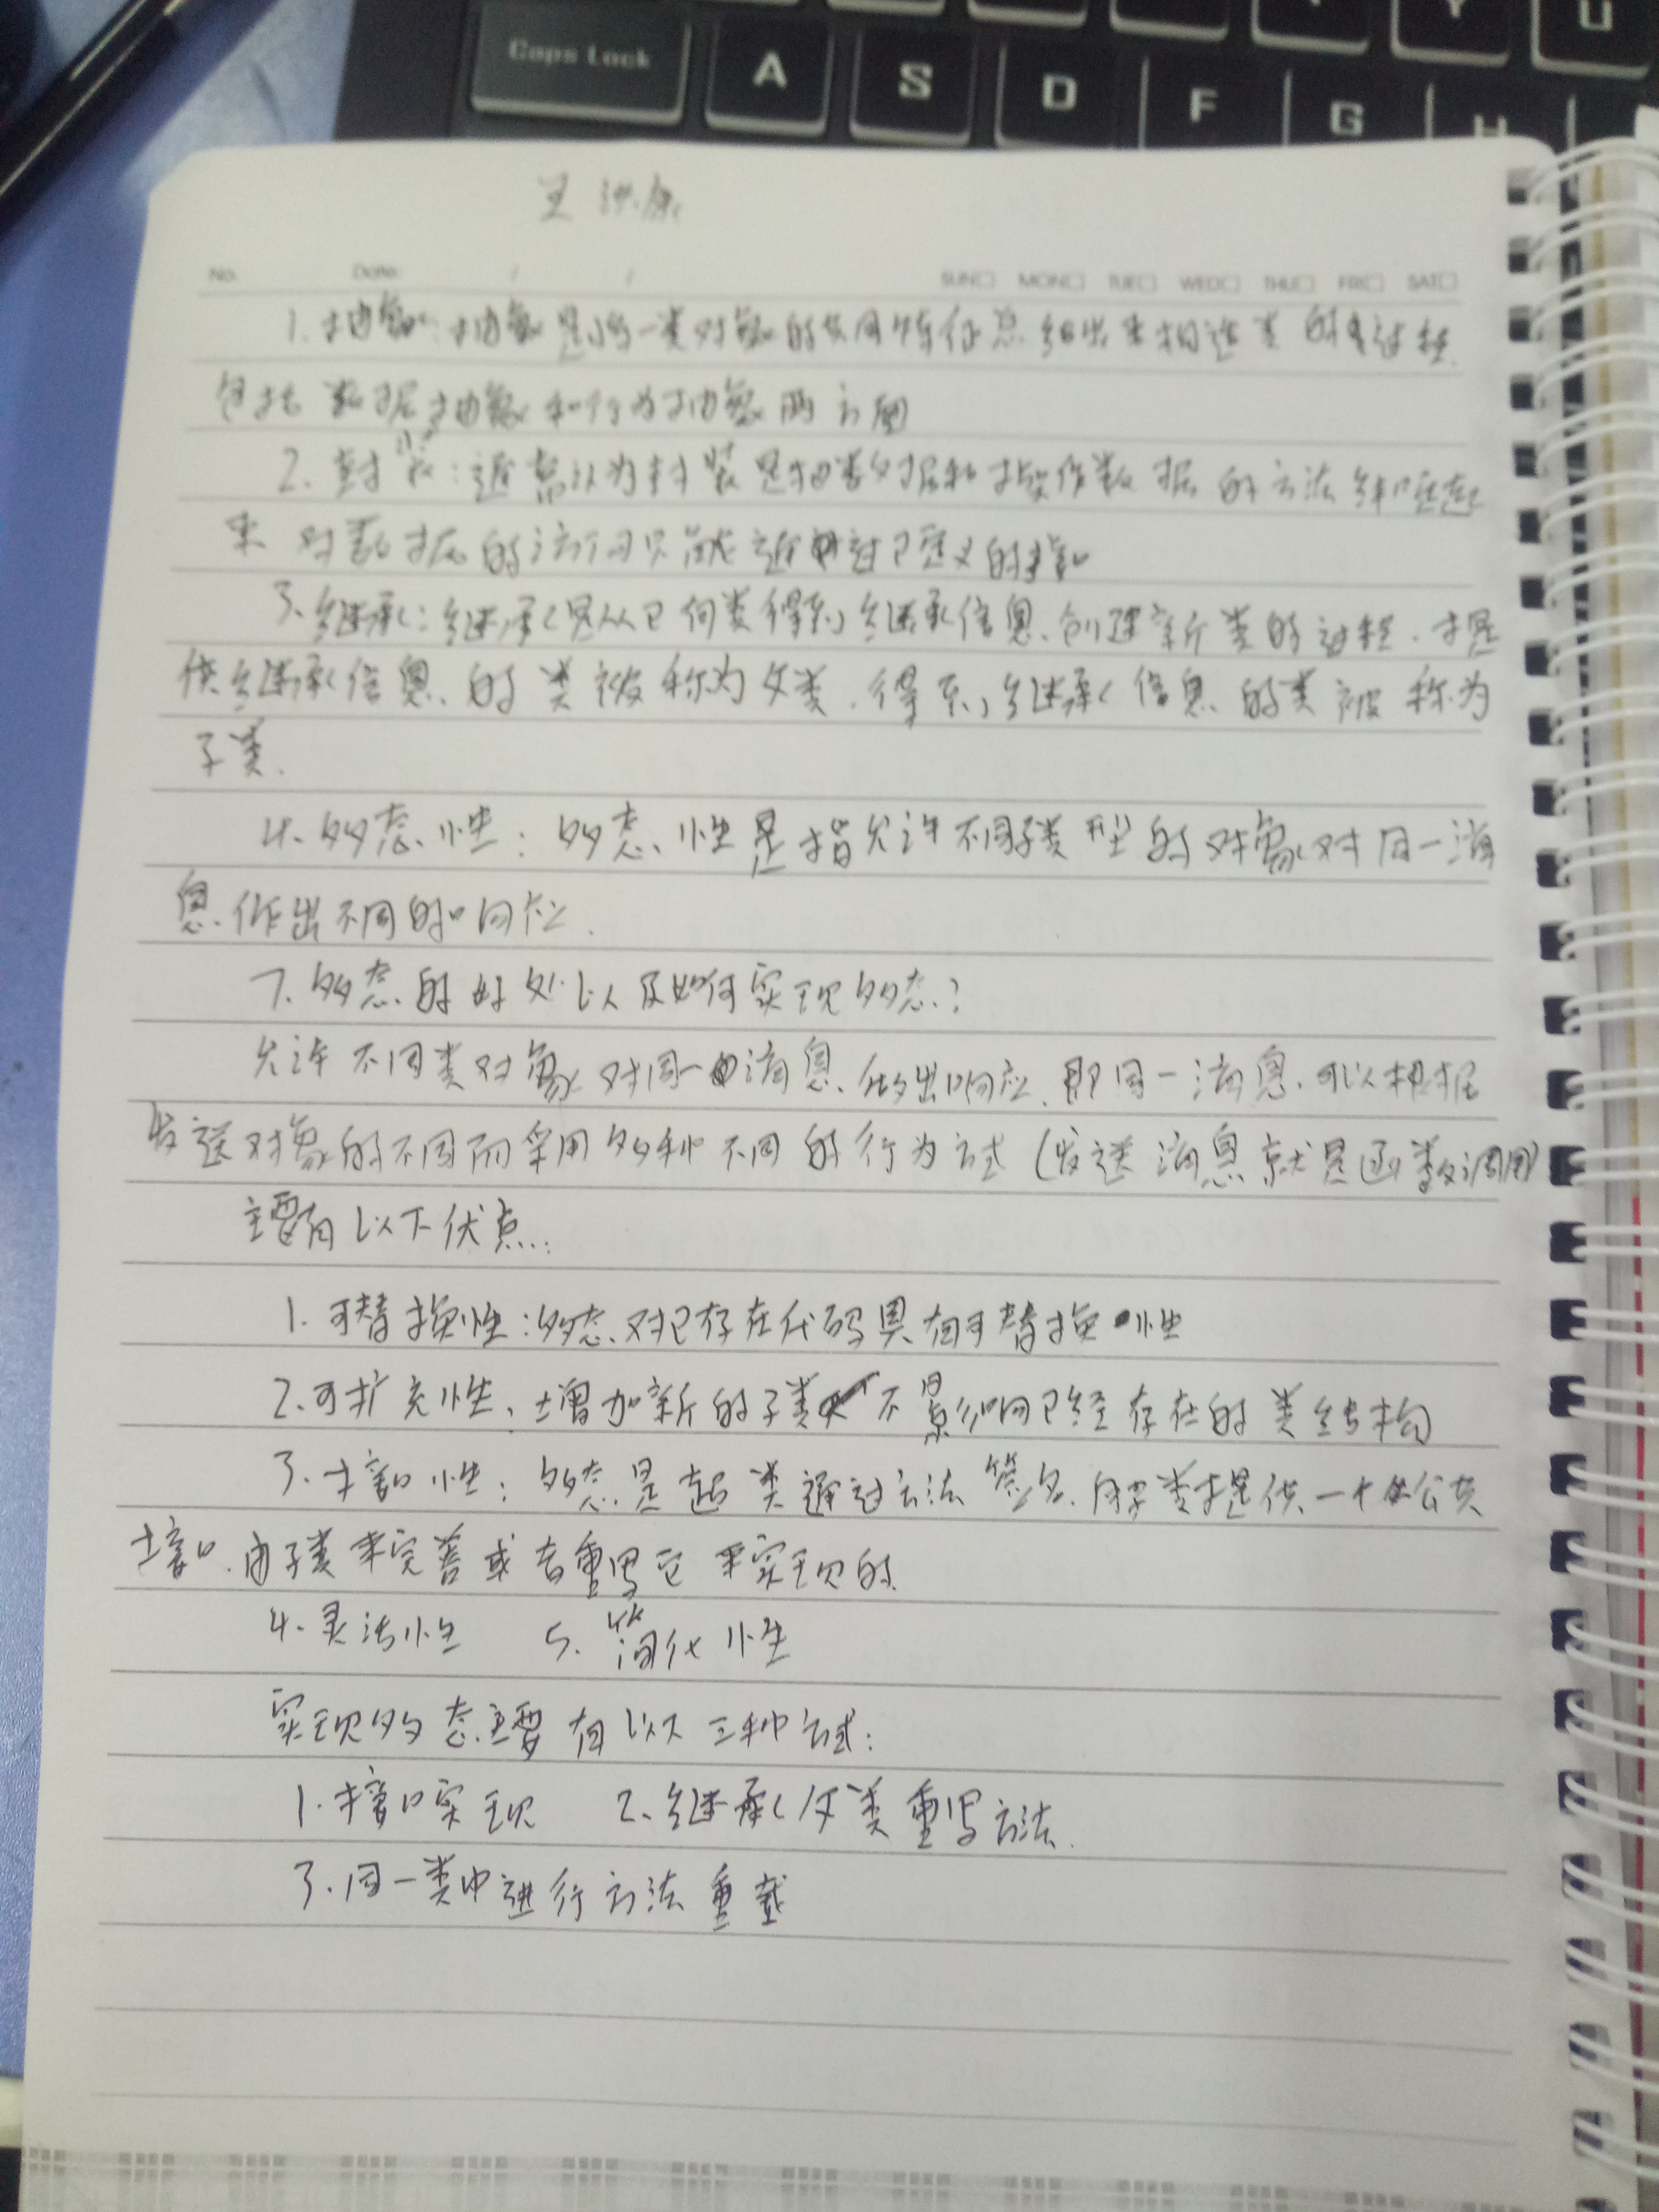 Caps Lock A S D F G H Y U
王洪康
No. Date: / / SUN□ MON□ TUE□ WED□ THU□ FRI□ SAT□
1. 抽象: 抽象是将一类对象的共同特征总结出来构造类的过程.
包括数据抽象和行为抽象两方面
2. 封装: 通常认为封装是把数据和操作数据的方法绑定起
来 对数据的访问只能通过已定义的接口
3. 继承: 继承是从已有类得到继承信息、创建新类的过程. 提
供继承信息的类被称为父类. 得到继承信息的类被称为
子类.
4. 多态性: 多态性是指允许不同子类型的对象对同一消
息作出不同的响应.
7. 多态的好处以及如何实现多态?
允许不同类对象对同一消息做出响应. 即同一消息可以根据
发送对象的不同而采用多种不同的行为方式 (发送消息就是函数调用)
主要有以下优点:
1. 可替换性: 多态对已存在代码具有可替换性
2. 可扩充性、增加新的子类不影响已经存在的类结构
3. 接口性: 多态是超类通过方法签名. 向子类提供一个公共
接口. 由子类来完善或者重写它来实现的.
4. 灵活性 5. 简化性
实现多态主要有以下三种方式:
1. 接口实现 2. 继承父类重写方法.
3. 同一类中进行方法重载